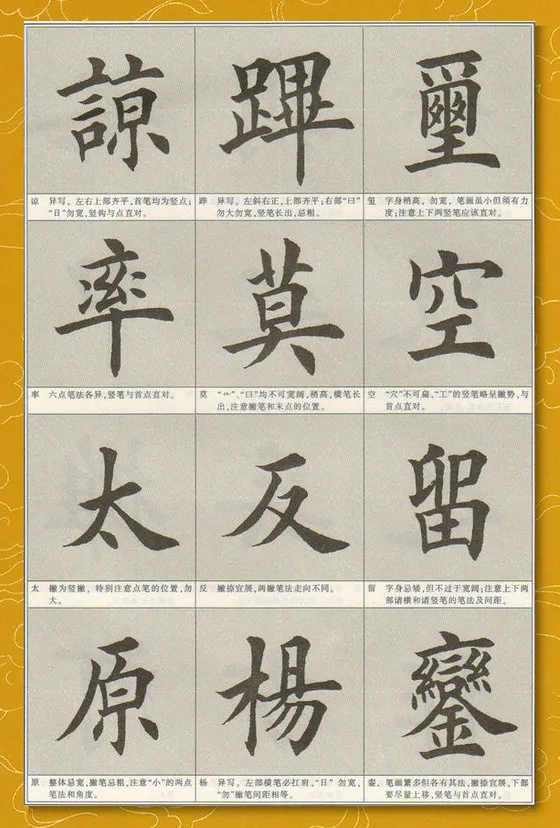 諒 蹕 璽
谅 异写。左右上部齐平，首笔均为竖点；
“日”勿宽，竖钩与点直对。
跸 异写。左斜右正，上部齐平；右部“曰”
勿大勿宽，竖笔长出，忌粗。
玺 字身稍高，勿宽，笔画虽小但须有力
度；注意上下两竖笔应该直对。
率 莫 空
率 六点笔法各异，竖笔与首点直对。
莫 “艹”、“曰”均不可宽阔，稍高，横笔长
出，注意撇笔和末点的位置。
空 “穴”不可扁，“工”的竖笔略呈撇势，与
首点直对。
太 反 留
太 撇为竖撇，特别注意点笔的位置，勿
大。
反 撇捺宜展，两撇笔法走向不同。
留 字身忌矮，但不过于宽阔；注意上下两
部诸横和诸竖笔的笔法及间距。
原 楊 鑾
原 整体忌宽，撇笔忌粗，注意“小”的两点
笔法和角度。
杨 异写。左部横笔必扛肩，“日”勿宽，
“勿”撇笔间距相等。
銮 笔画繁多但各有其法，撇捺宜展，下部
要尽量上移，竖笔与首点直对。